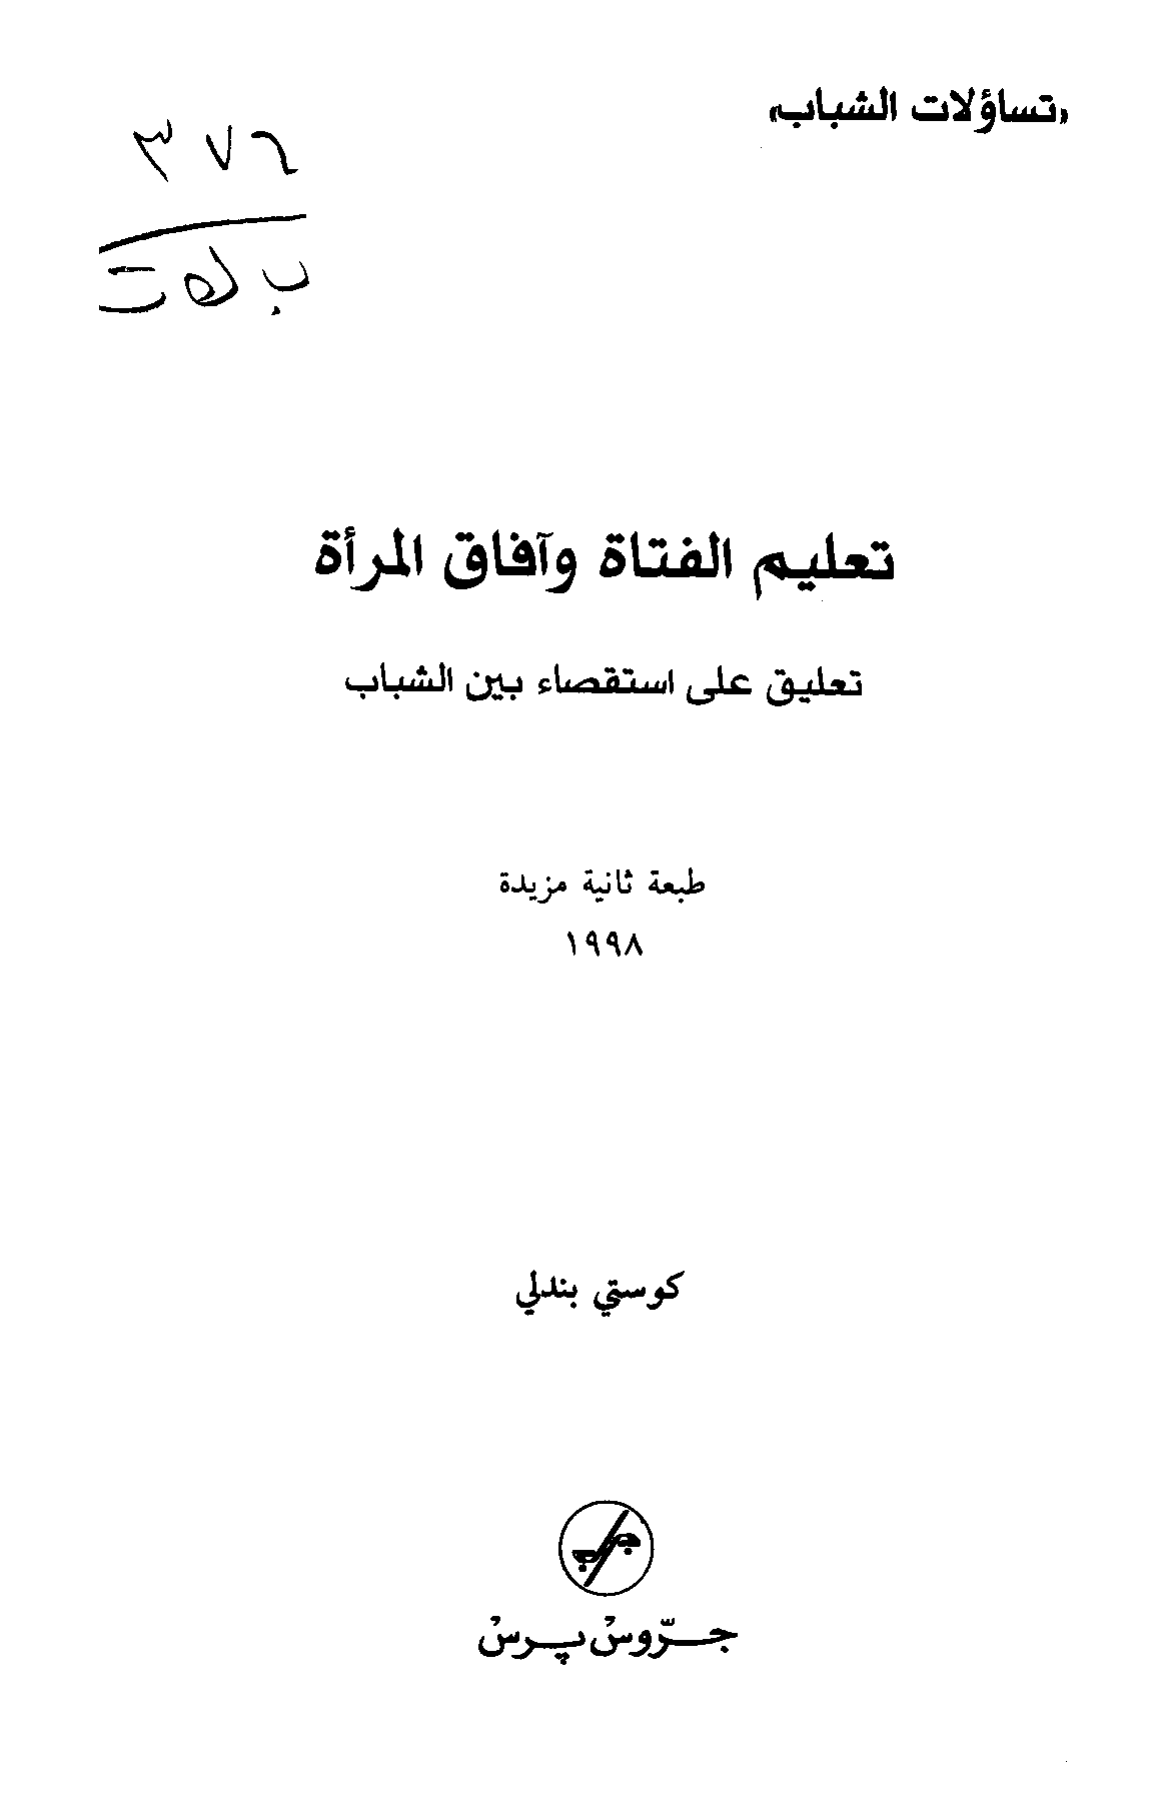 «تساؤلات الشباب»
٣٧٦
ب ك ت
تعليم الفتاة وآفاق المرأة
تعليق على استقصاء بين الشباب
طبعة ثانية مزيدة
١٩٩٨
كوستي بندلي
جرّوسْ پرسْ